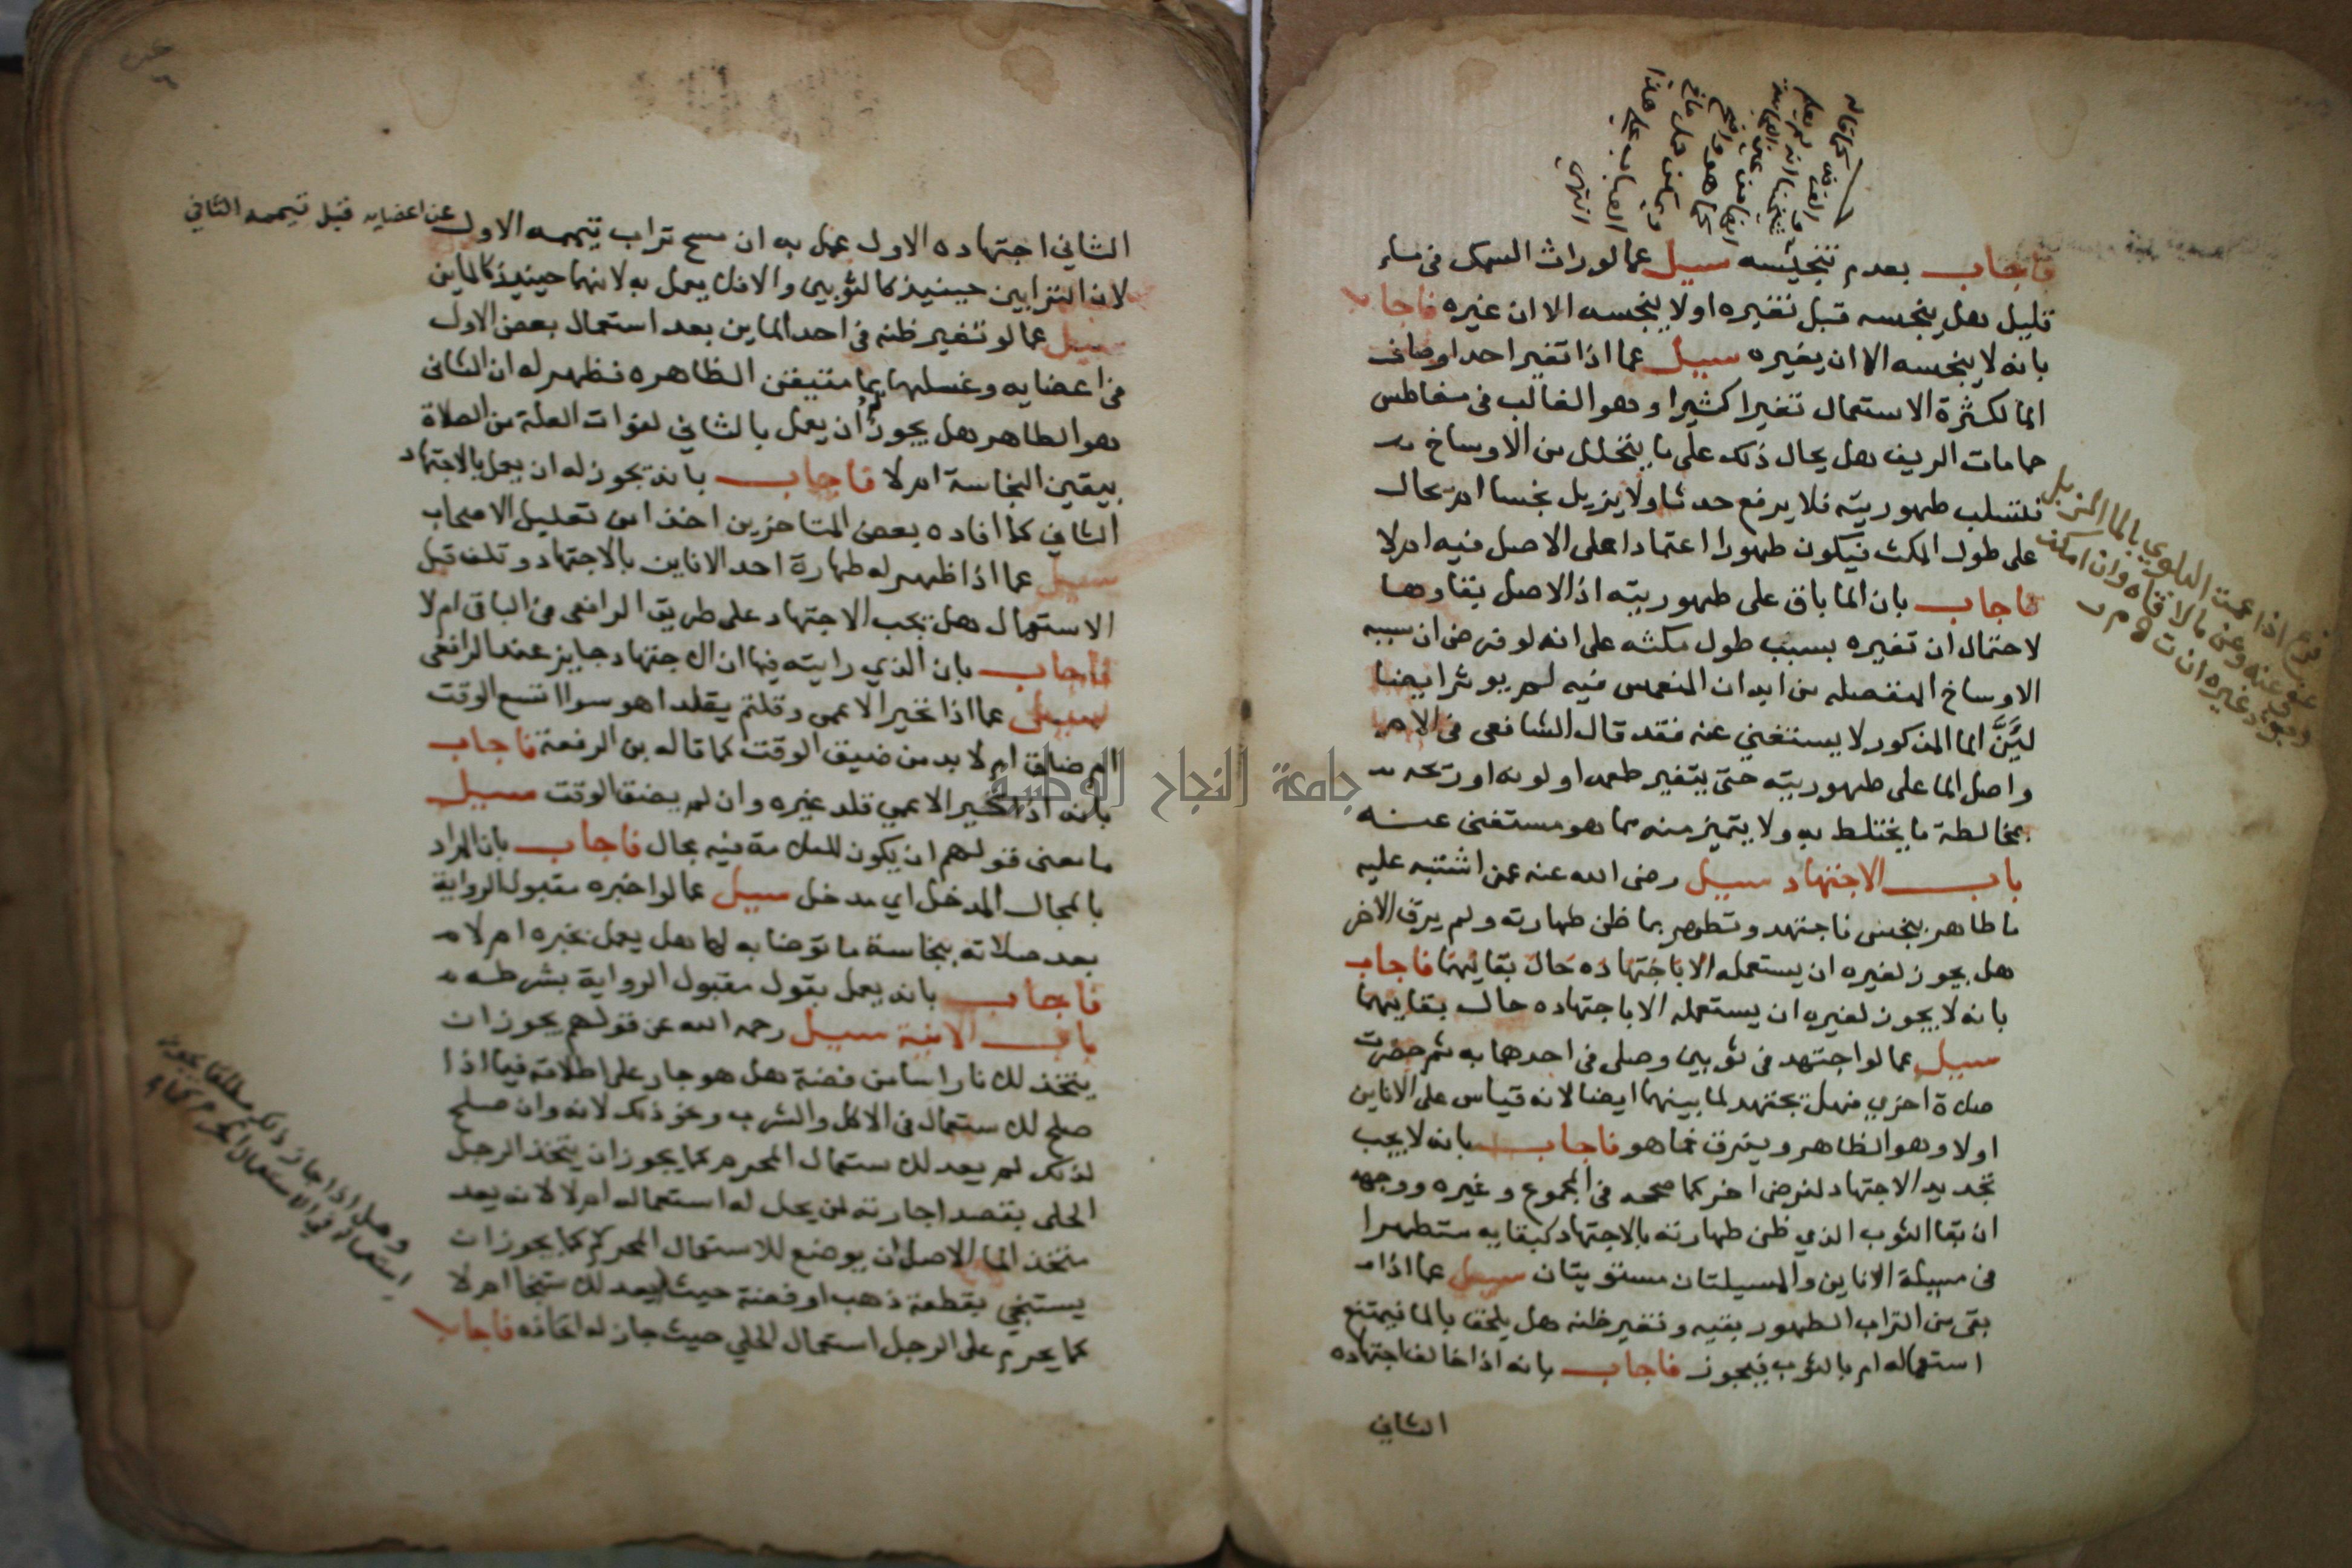 كما قاله
فاجاب بعدم تنجيسه سيل عما لو راث السمك في ماء
قليل هل ينجسه قبل تغيره او لا ينجسه الا ان غيره فاجاب
بانه لا ينجسه الا ان يغيره سيل عما اذا تغير احد اوصاف
الما لكثرة الاستعمال تغيرا كثيرا وهو الغالب في مغاطس
حمامات الريف هل يحال ذلك على ما يتحلل من الاوساخ
فتسلب طهوريته فلا يرفع حدثا ولا يزيل نجسا ام يحال
على طول المكث فيكون طهورا اعتمادا على الاصل فيه ام لا
فاجاب بان الما باق على طهوريته اذ الاصل بقاوها
لاحتمال ان تغيره بسبب طول مكثه على انه لو فرض ان سببه
الاوساخ المنفصله من ابدان المنغمس فيه لم يوثر ايضا
الما المذكور لا يستغني عنه فقد قال الشافعى فى الام
واصل الما على طهوريته حتى يتغير طعمه او لونه او ريحه
بمخالطة ما يختلط به ولا يتميز منه مما هو مستغنى عنه
باب الاجتهاد سيل رضى الله عنه عمن اشتبه عليه
ما طاهر بنجس فاجتهد وتطهر بما ظن طهارته ولم يرق الاخر
هل يجوز لغيره ان يستعمله الا باجتهاده حال بقايهما فاجاب
بانه لا يجوز لغيره ان يستعمله الا باجتهاده حال بقايهما
سيل عما لو اجتهد في ثوبين وصلى في احدهما به ثم حضرت
صلاة اخرى فهل يجتهد لما بينهما ايضا لانه قياس على الاناين
اولا وهو الظاهر ويفرق فما هو فاجاب بانه لا يجب
تجديد الاجتهاد لفرض اخر كما صححه في المجموع وغيره ووجهه
ان بقا الثوب الذي ظن طهارته بالاجتهاد كبقايه متطهرا
في مسيلة الاناين والمسيلتان مستويتان سيل عما اذا
بقى من التراب الطهور بقيه وتغير ظنه هل يلحق بالما فيمتنع
استعماله ام بالثوب فيجوز فاجاب بانه اذا خالف اجتهاده
الثاني
فرع اذا عمت البلوي بالما المزيل
الثاني اجتهاده الاول عمل به ان مسح تراب تيممه الاول عن اعضايه قبل تيممه الثاني
لان الترابين حينيذ كالثوبين والا فلا يعمل به لانهما حينيذ كالماين
سيل عما لو تغير ظنه في احد الماين بعد استعمال بعض الاول
في اعضايه وغسلها بما متيقن الظاهره فظهر له ان الثانى
هو الطاهر هل يجوز ان يعمل بالثاني لفوات العلة من الصلاة
بيقين النجاسة ام لا فاجاب بانه يجوز له ان يعمل بالاجتهاد
الثاني كما افاده بعض المتاخرين اخذا من تعليل الاصحاب
سيل عما اذا ظهر له طهارة احد الاناين بالاجتهاد وتلف قبل
الاستعمال هل يجب الاجتهاد على طريق الرافعى في الباقى ام لا
فاجاب بان الذي رايته فيها ان الاجتهاد جايز عند الرافعى
سيل عما اذا تحير الاعمى وقلتم يقلد اهو سوا اتسع الوقت
ام ضاق ام لا بد من ضيق الوقت كما قاله بن الرفعة فاجاب
بانه اذا تحير الاعمي قلد غيره وان لم يضق الوقت سيل
ما معنى قولهم ان يكون للعلامة فيه مجال فاجاب بان المراد
بالمجال المدخل اي مدخل سيل عما لو اخبره مقبول الرواية
بعد صلاته بنجاسة ما توضا به لها هل يعمل بخبره ام لا
فاجاب بانه يعمل بقول مقبول الرواية بشرطه
باب الانية سيل رحمه الله عن قولهم يجوز ان
يتخذ للانا راسا من فضة هل هو جار على اطلاقه فيما اذا
صلح للاستعمال في الاكل والشرب ونحو ذلك لانه وان صلح
لذلك لم يعد للاستعمال المحرم كما يجوز ان يتخذ الرجل
الحلى بقصد اجارته لمن يحل له استعماله ام لا لانه يعد
متخذ الما الاصل ان يوضع للاستعمال المحرم كما يجوز ان
يستنجي بقطعة ذهب او فضة حيث لم يعد للاستنجا ام لا
كما يحرم على الرجل استعمال الحلي حيث جاز له اتخاذه فاجاب
وهل اذا جاز ذلك مطلقا يجوز
جامعة النجاح الوطنية